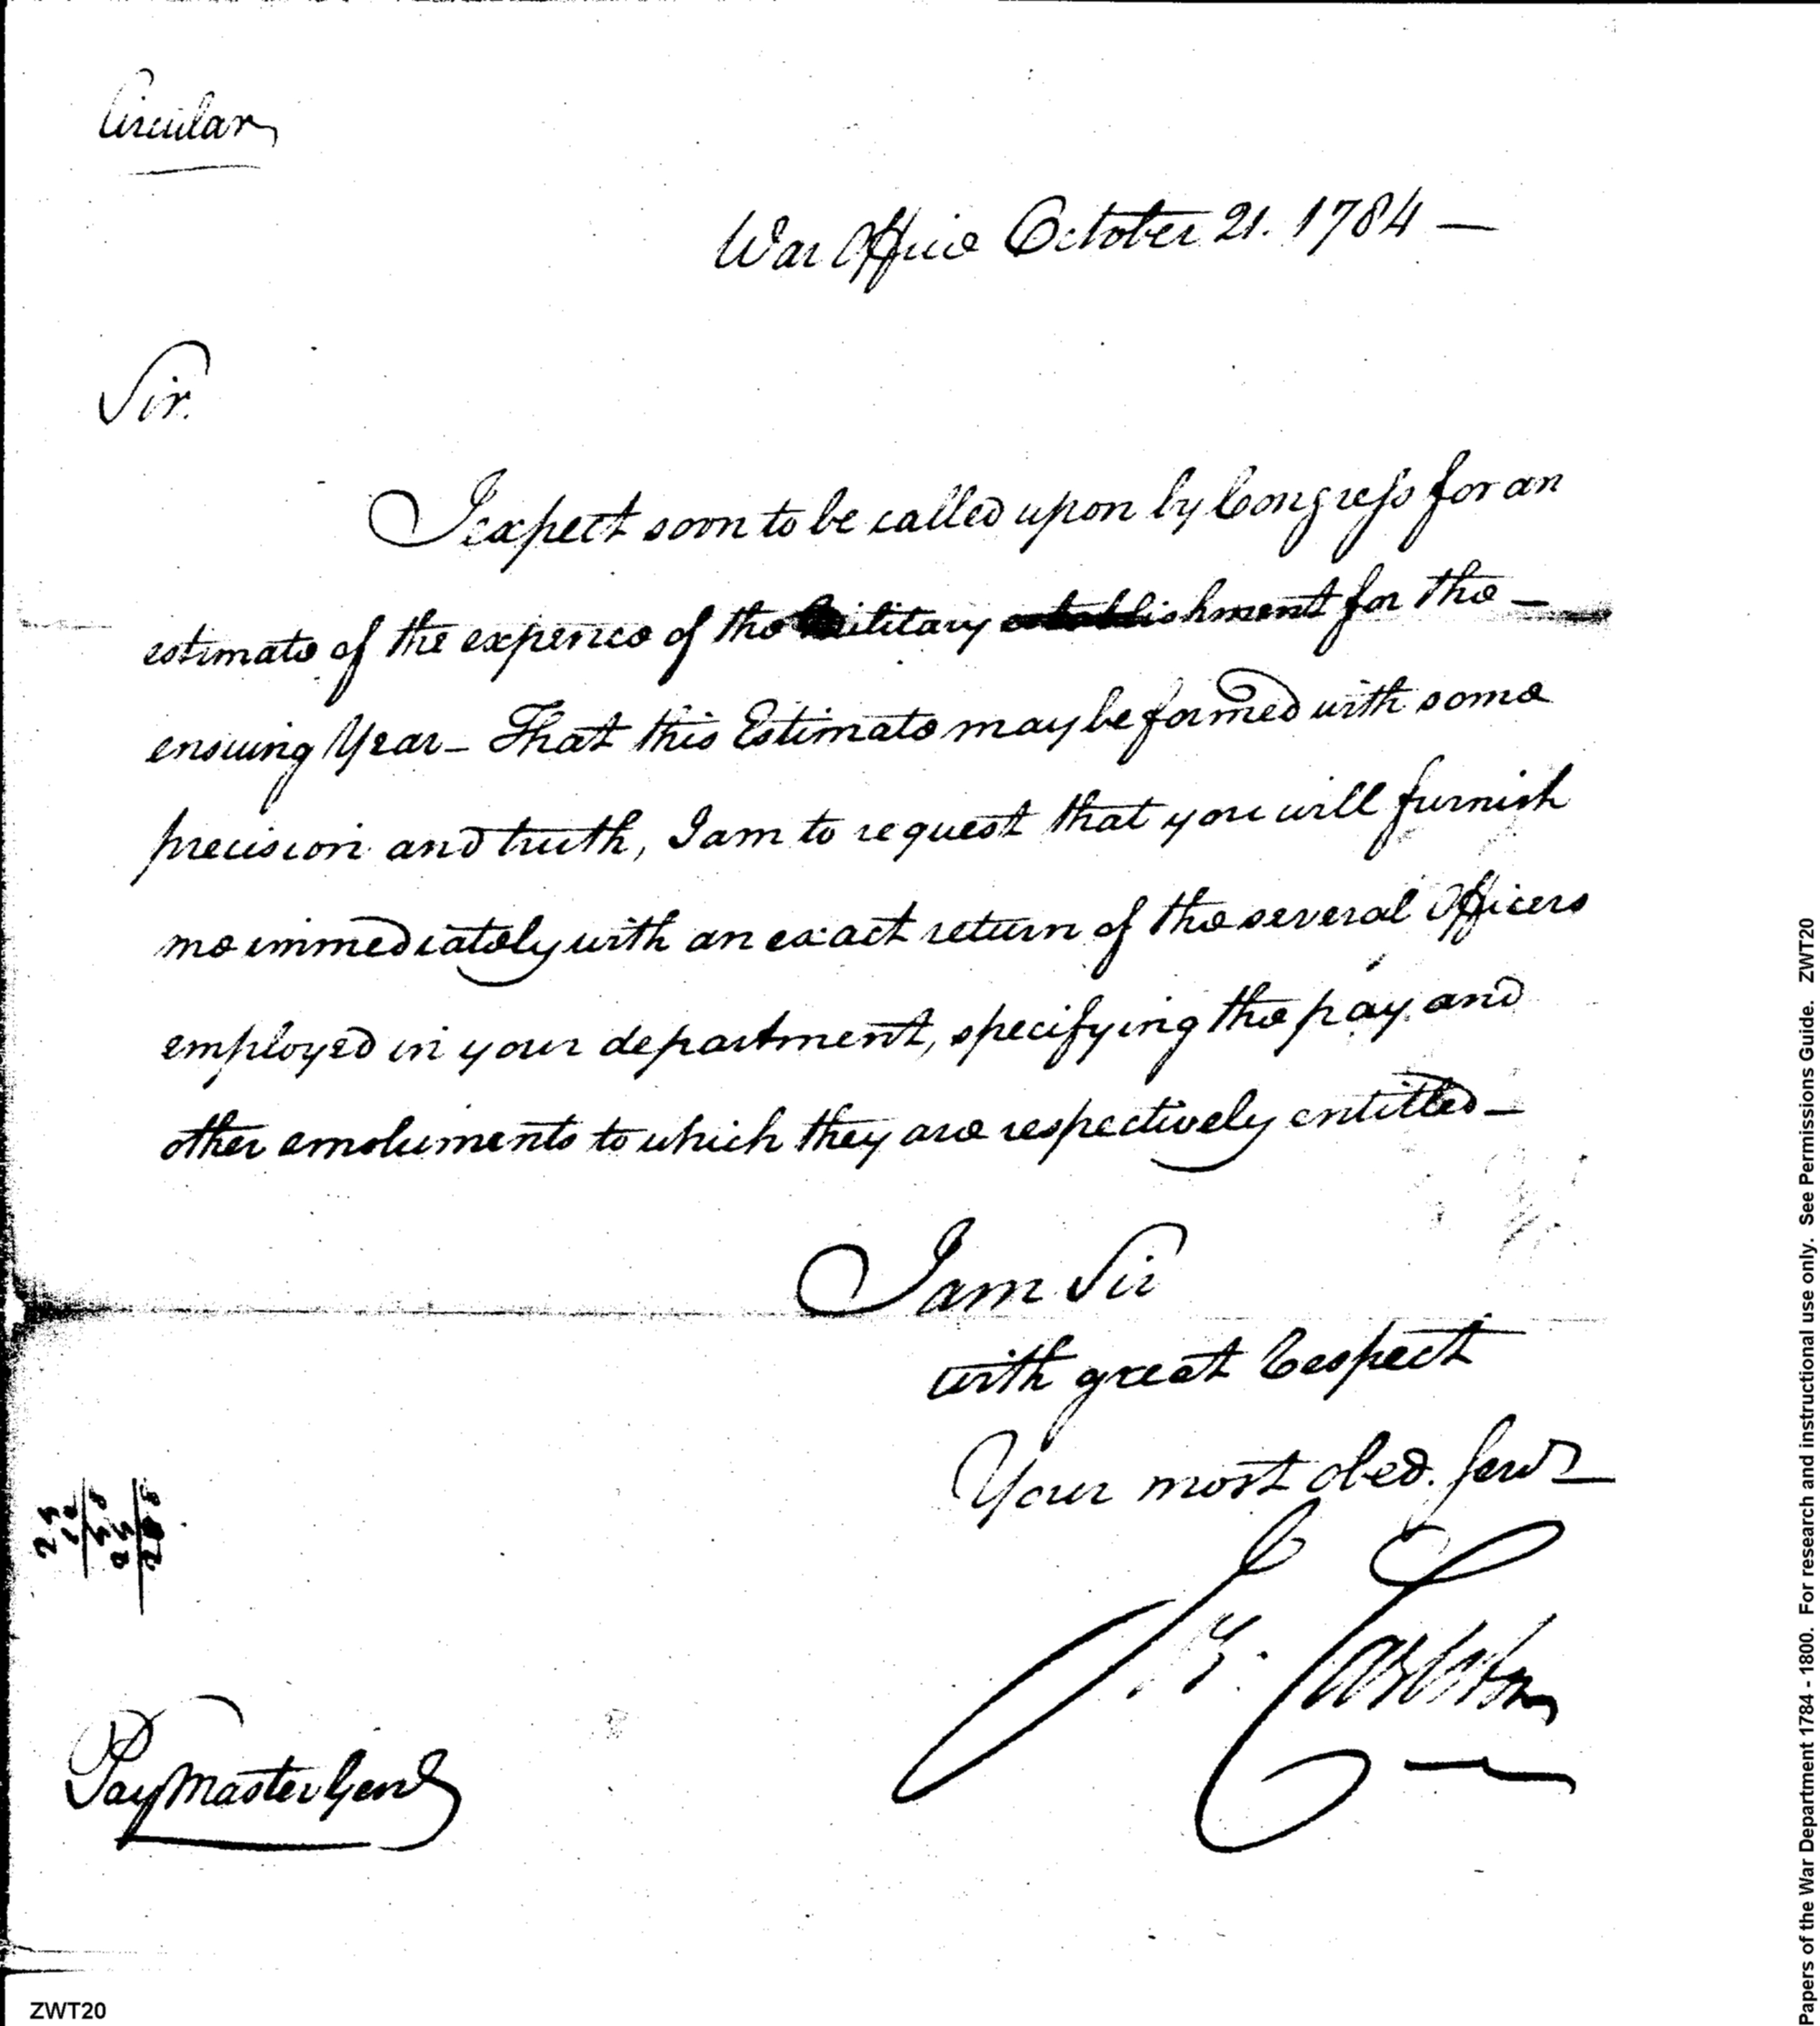 Circular
War Office October 21. 1784 —
Sir.
I expect soon to be called upon by Congress for an
estimate of the expence of the Military establishment for the —
ensuing Year – That this Estimate may be formed with some
precision and truth, I am to request that you will furnish
me immediately with an exact return of the several Officers
employed in your department, specifying the pay and
other emoluments to which they are respectively entitled –
I am Sir
with great Respect
Your most obed. Servt
J Carleton
Pay Master Genl
ZWT20
Papers of the War Department 1784 - 1800. For research and instructional use only. See Permissions Guide. ZWT20